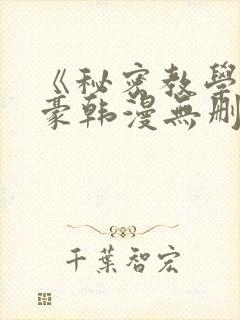 《秘密教學
豪韩漫無刪
千葉智宏